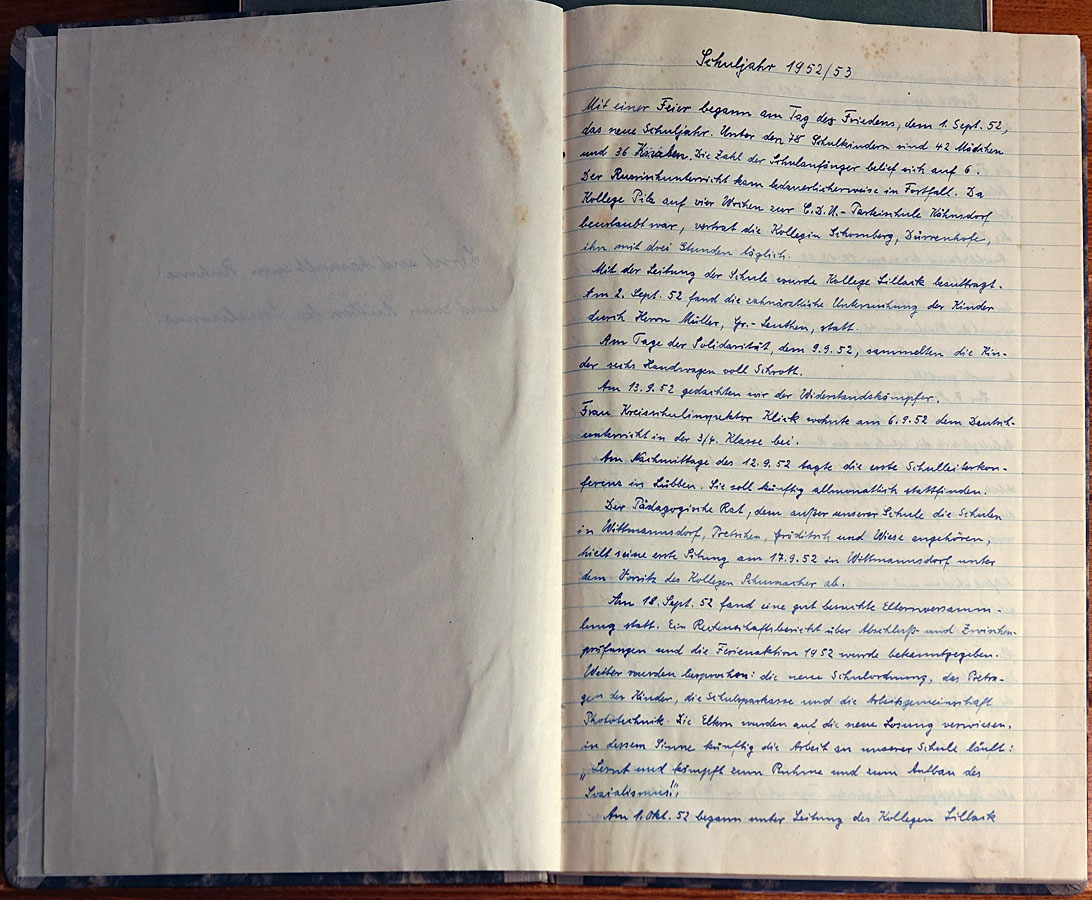 Schuljahr 1952/53
Mit einer Feier begann am Tag des Friedens, dem 1. Sept. 52,
das neue Schuljahr. Unter den 78 Schulkindern sind 42 Mädchen
und 36 Knaben. Die Zahl der Schulanfänger belief sich auf 6.
Der Russischunterricht kam bedauerlicherweise in Fortfall. Da
Kollege Pilz auf vier Wochen zur C.D.U.-Parteischule Hähnsdorf
beurlaubt war, vertrat die Kollegin Schomberg, Dürrenhofe,
ihn mit drei Stunden täglich.
Mit der Leitung der Schule wurde Kollege Lillack beauftragt.
Am 2. Sept. 52 fand die zahnärztliche Untersuchung der Kinder
durch Herrn Müller, Gr.-Leuthen, statt.
Am Tage der Solidarität, dem 9.9.52, sammelten die Kin-
der sechs Handwagen voll Schrott.
Am 13.9.52 gedachten wir der Widerstandskämpfer.
Frau Kreisschulinspektor Klick wohnte am 6.9.52 dem Deutsch-
unterricht in der 3/4. Klasse bei.
Am Nachmittage des 12.9.52 tagte die erste Schulleiterkon-
ferenz in Lübben. Sie soll künftig allmonatlich stattfinden.
Der Pädagogische Rat, dem außer unserer Schule die Schulen
in Wittmannsdorf, Pretschen, Gröditsch und Wiese angehören,
hielt seine erste Sitzung am 17.9.52 in Wittmannsdorf unter
dem Vorsitz des Kollegen Schumacher ab.
Am 18. Sept. 52 fand eine gut besuchte Elternversamm-
lung statt. Ein Rechenschaftsbericht über Abschluß- und Zwischen-
prüfungen und die Ferienaktion 1952 wurde bekanntgegeben.
Weiter wurden besprochen: die neue Schulordnung, das Betra-
gen der Kinder, die Schulsparkasse und die Arbeitsgemeinschaft
Phototechnik. Die Eltern wurden auf die neue Losung verwiesen,
in dessem Sinne künftig die Arbeit an unserer Schule läuft:
„Lernt und kämpft zum Ruhme und zum Aufbau des
Sozialismus!"
Am 1. Okt. 52 begann unter Leitung des Kollegen Lillack